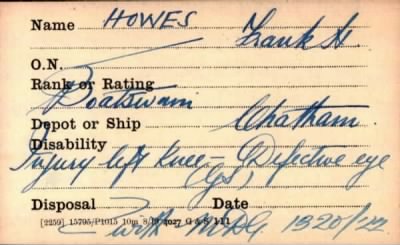 Name HOWES
Frank H.
O.N.
Rank or Rating
Boatswain
Depot or Ship Chatham.
Disability
Injury left Knee – Defective eye
Disposal Date
[2259] 15795/P1015 10m 8/19 G & S 111
with M.D.G. 1320/22